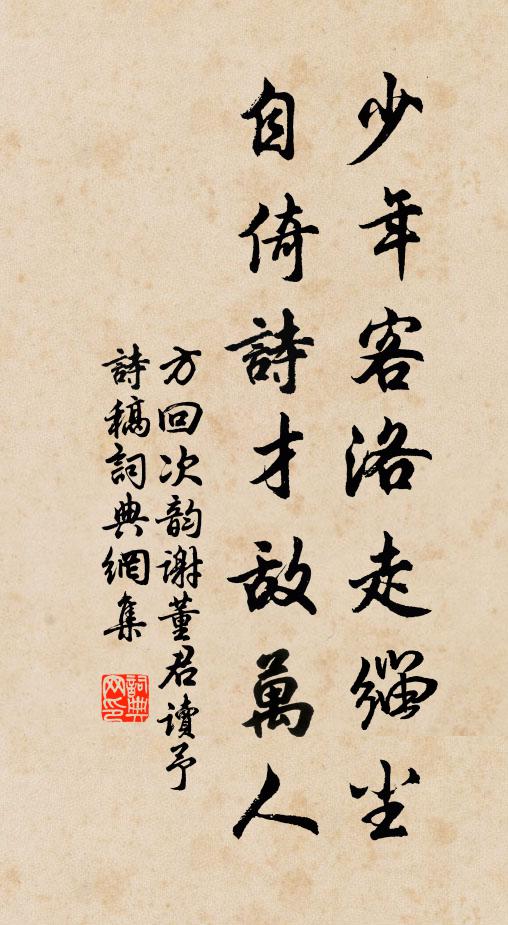 少年客洛走緇尘
自倚詩才敌萬人
方回次韵謝董君讀予
詩稿詞典網集
詞典
网印